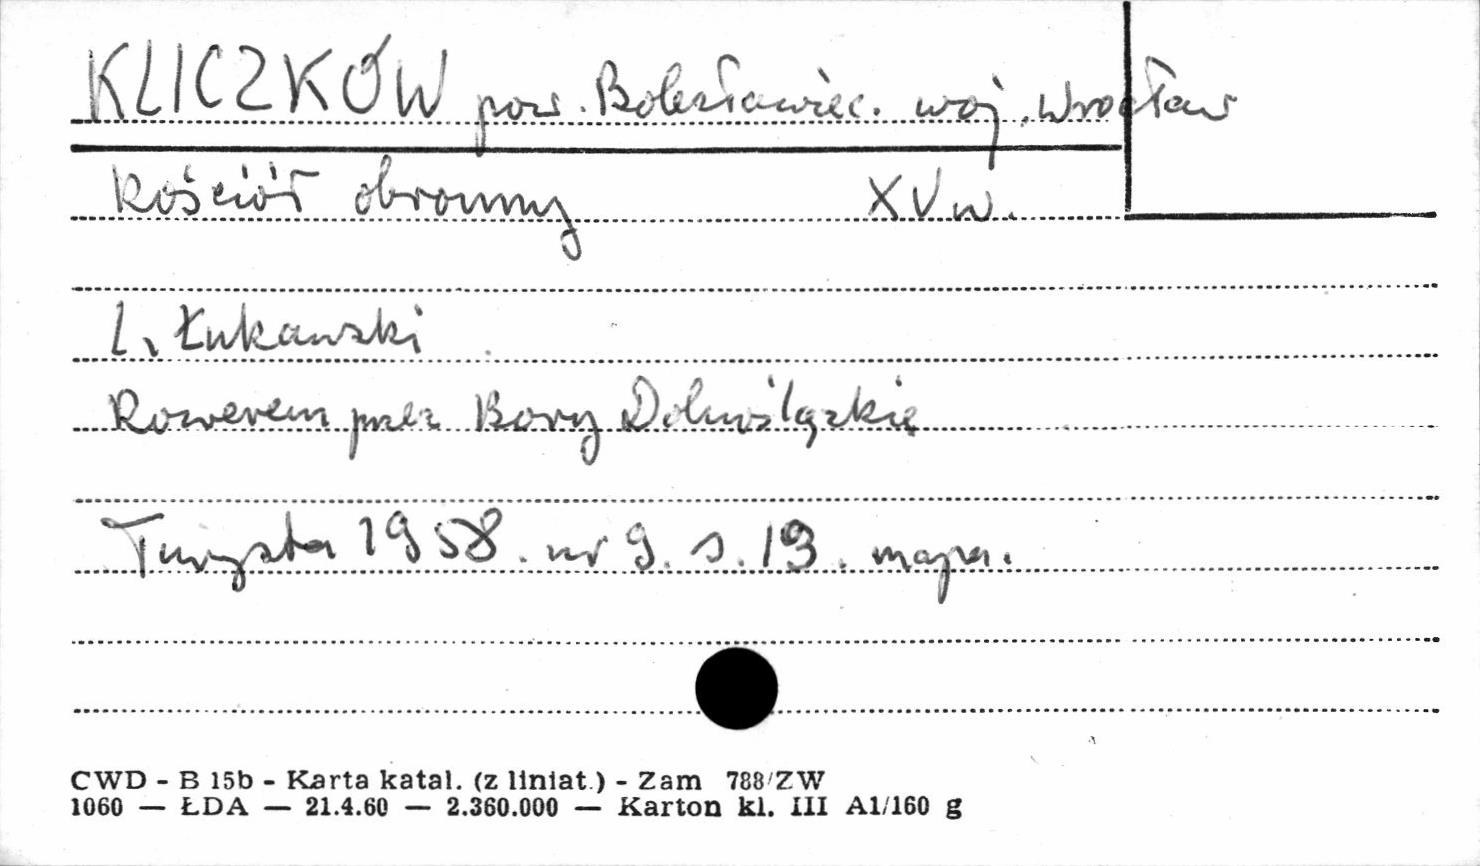 KLICZKÓW pow. Bolesławiec. woj. Wrocław
Kościół obronny XV w.
L. Łukawski
Rowerem przez Bory Dolnośląskie
Turysta 1958. nr 9. s. 19. mapa.
CWD - B 15b - Karta katal. (z liniat.) - Zam 788/ZW
1060 — ŁDA — 21.4.60 — 2.360.000 — Karton kl. III A1/160 g